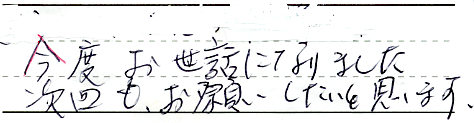 今度お世話になりました
次回も、お願いしたいと思います.